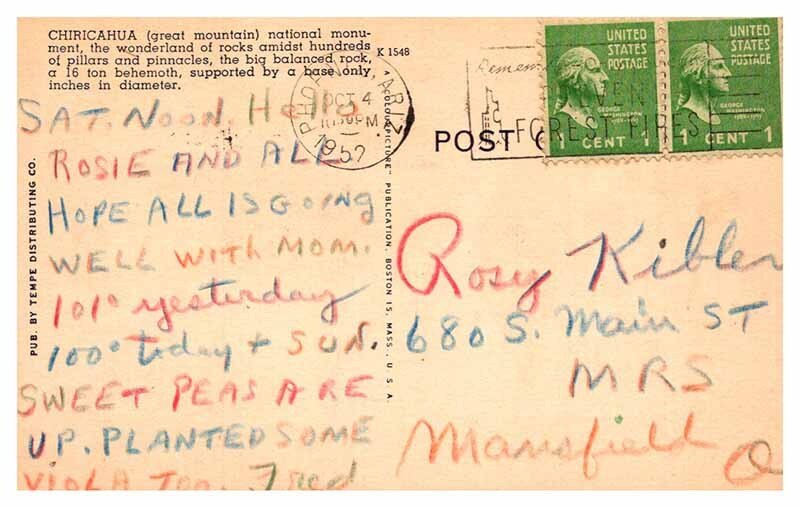 CHIRICAHUA (great mountain) national monu-
ment, the wonderland of rocks amidst hundreds
of pillars and pinnacles, the big balanced rock,
a 16 ton behemoth, supported by a base only,
inches in diameter.
K 1548
SAT. NOON. Hello
ROSIE AND ALL
HOPE ALL IS GOING
WELL WITH MOM.
101° yesterday
100° today + SUN.
SWEET PEAS ARE
UP. PLANTED SOME
VIOLA TOO. Fred
PUB. BY TEMPE DISTRIBUTING CO.
A "COLOURPICTURE" PUBLICATION, BOSTON 15, MASS., U. S. A.
PHOENIX ARIZ
OCT 4
PM
1952
Remem
VEN
FOREST FIRES
UNITED
STATES
POSTAGE
GEORGE
WASHINGTON
1789-1797
1 CENT 1
UNITED
STATES
POSTAGE
GEORGE
WASHINGTON
1789-1797
1 CENT 1
POST
Rosy Kibler
680 S. Main ST
MRS
Mansfield O